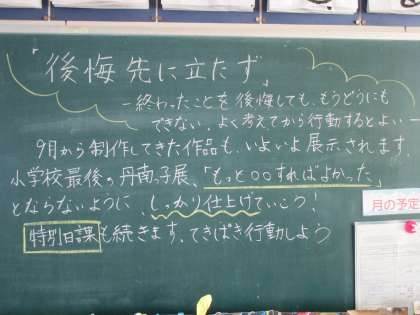 「後悔先に立たず」
－終わったことを後悔しても、もうどうにも
できない。よく考えてから行動するとよい－
9月から制作してきた作品も、いよいよ展示されます。
小学校最後の丹南っ子展、「もっと○○すればよかった」
とならないように、しっかり仕上げていこう！
特別日課も続きます。てきぱき行動しよう
月の予定